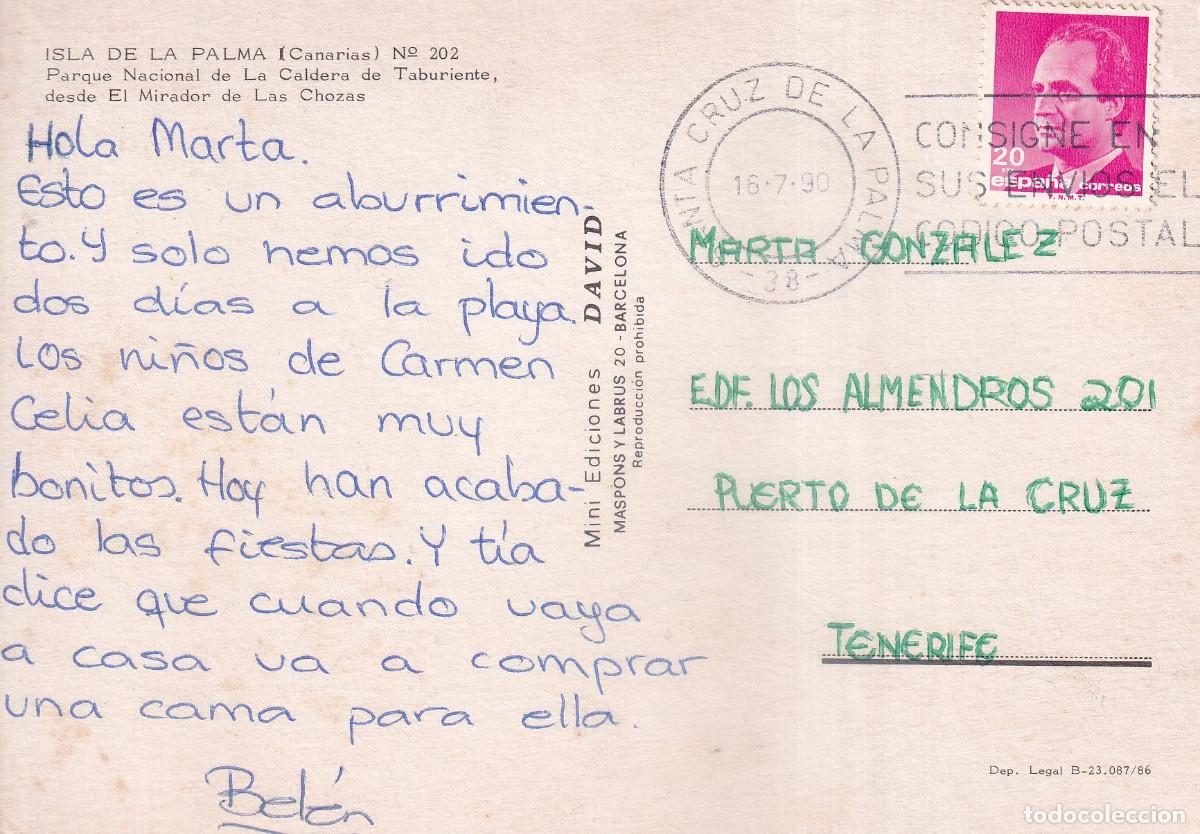 ISLA DE LA PALMA (Canarias) Nº 202
Parque Nacional de La Caldera de Taburiente,
desde El Mirador de Las Chozas
Hola Marta.
Esto es un aburrimien-
to. Y solo hemos ido
dos días a la playa.
Los niños de Carmen
Celia están muy
bonitos. Hoy han acaba-
do las fiestas. Y tía
dice que cuando vaya
a casa va a comprar
una cama para ella.
Belén
Mini Ediciones DAVID
MASPONS Y LABRUS 20 - BARCELONA
Reproducción prohibida
SANTA CRUZ DE LA PALMA
16·7·90
-38-
CONSIGNE EN
SUS ENVIOS EL
CODIGO POSTAL
20
españa correos
F.N.M.T.
MARTA GONZALEZ
EDF. LOS ALMENDROS 201
PUERTO DE LA CRUZ
TENERIFE
Dep. Legal B-23.087/86
todocoleccion